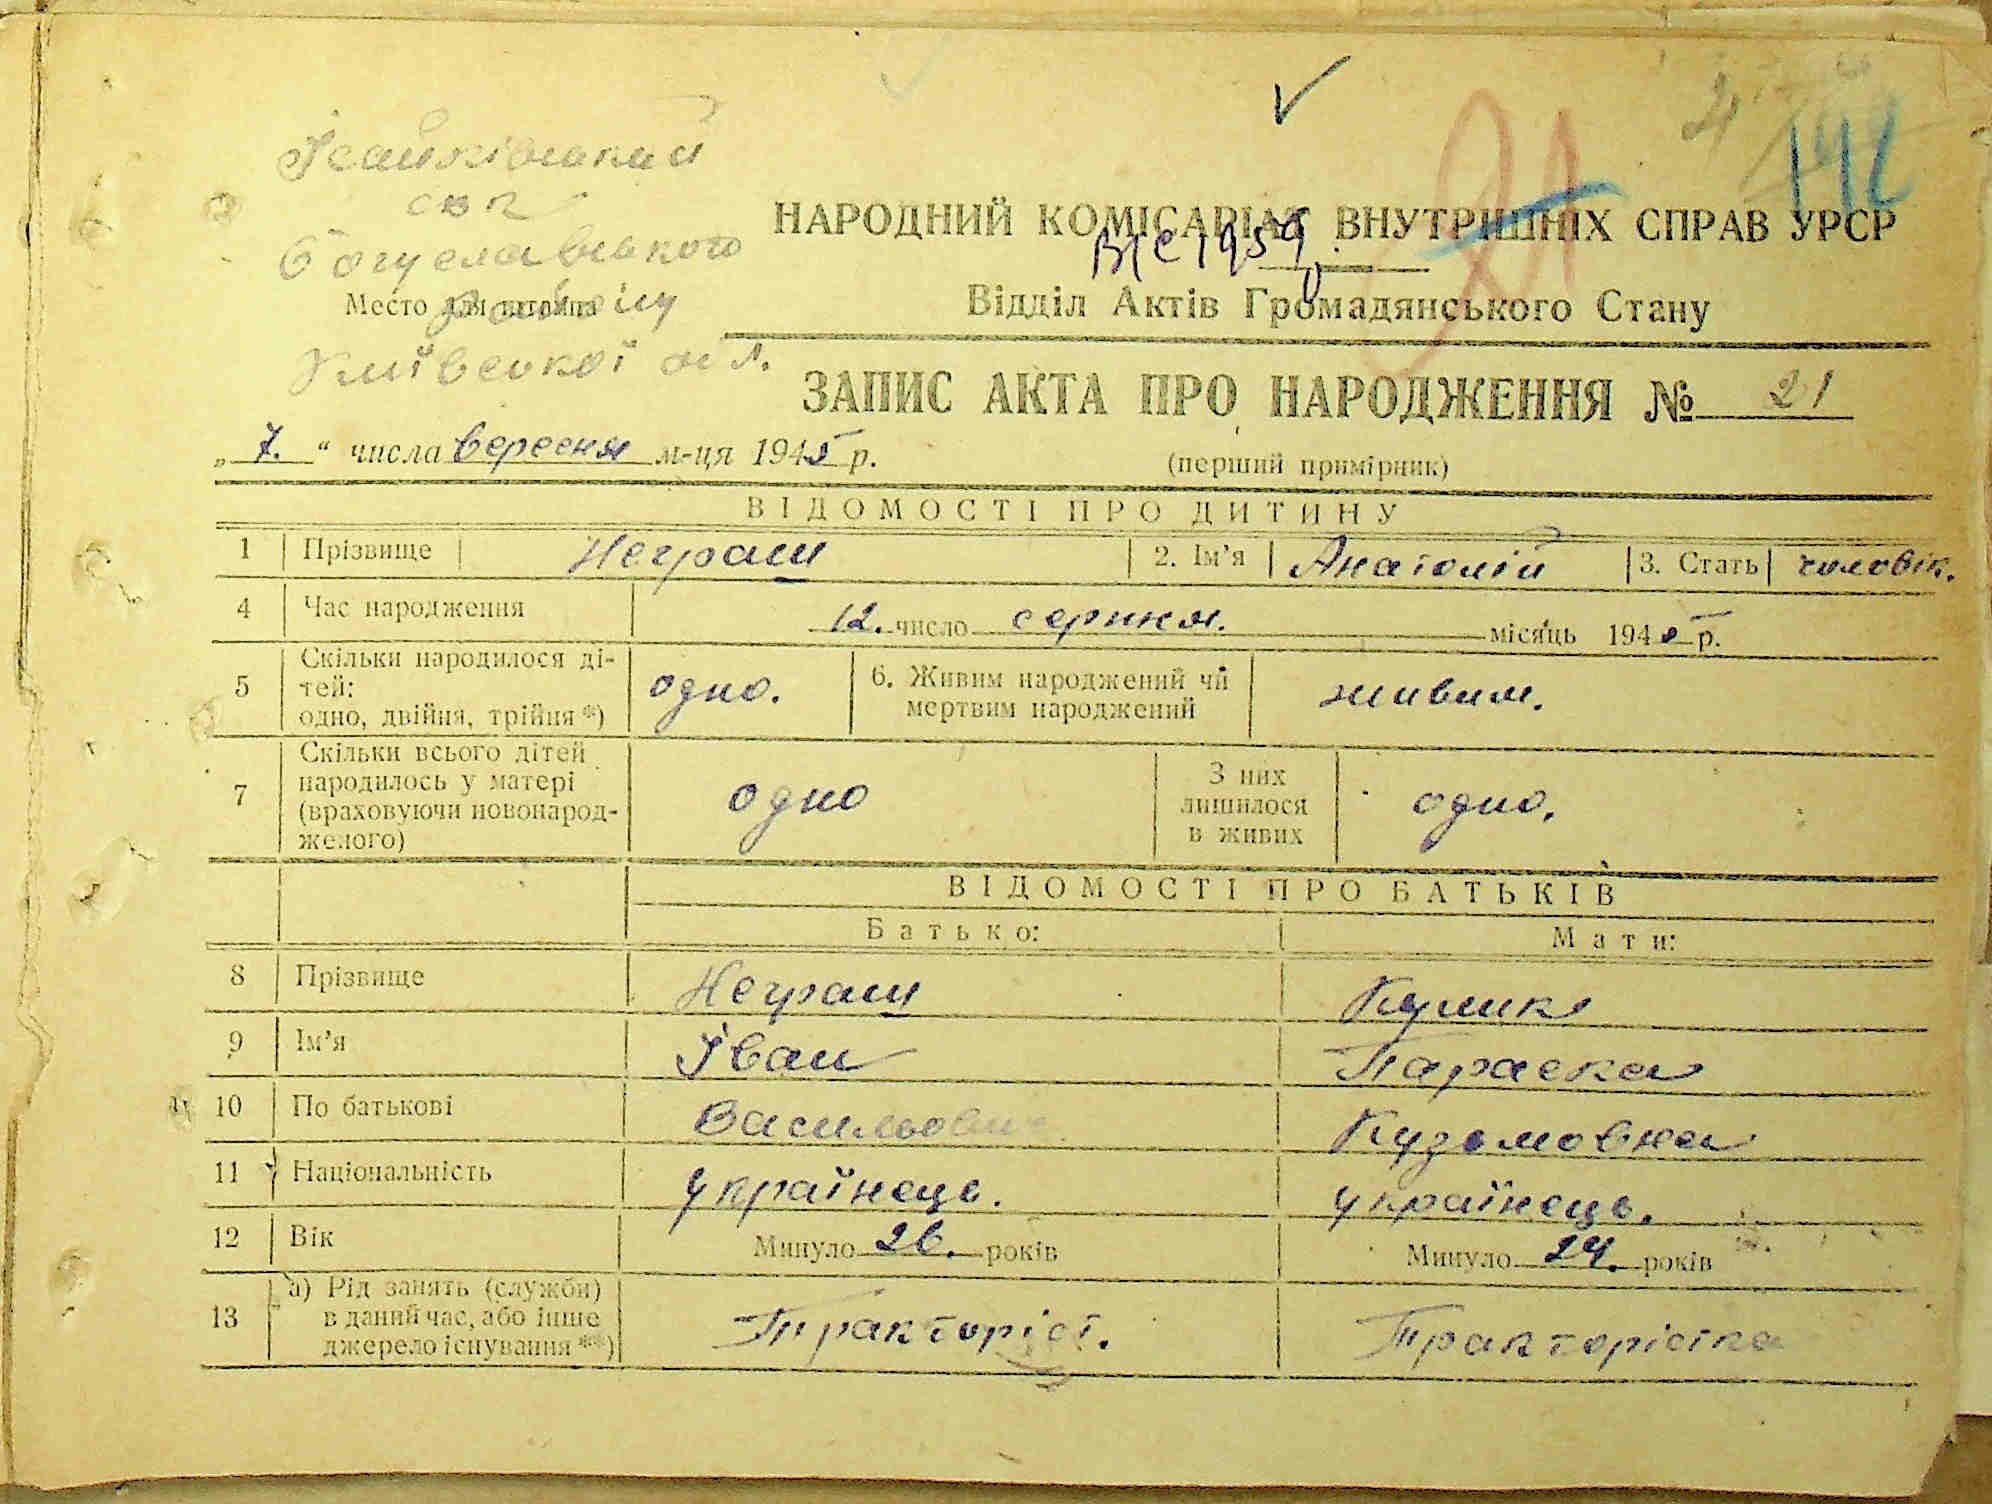 Ісайківський
Богуславського
Место для штампа
району
Київської обл.
21
НАРОДНИЙ КОМІСАРІАТ ВНУТРІШНІХ СПРАВ УРСР
Відділ Актів Громадянського Стану
ЗАПИС АКТА ПРО НАРОДЖЕННЯ № 21
„ 7. “ числа вересня м-ця 1945 р.
(перший примірник)
ВІДОМОСТІ ПРО ДИТИНУ
1 Прізвище Неграш 2. Ім’я Анатолій 3. Стать чоловік.
4 Час народження 12. число серпня. місяць 1945 р.
5 Скільки народилося ді-
тей:
одно, двійня, трійня *) одно. 6. Живим народжений чи
мертвим народжений живим.
7 Скільки всього дітей
народилось у матері
(враховуючи новонарод-
женого) одно З них
лишилося
в живих одно.
ВІДОМОСТІ ПРО БАТЬКІВ
Батько: Мати:
8 Прізвище Неграш Кулик
9 Ім’я Іван Параска
10 По батькові Васильович Кузьмовна
11 Національність українець. українець.
12 Вік Минуло 26. років Минуло 24. років
13 а) Рід занять (служби)
в даний час, або інше
джерело існування **) Тракторіст. Трактористка